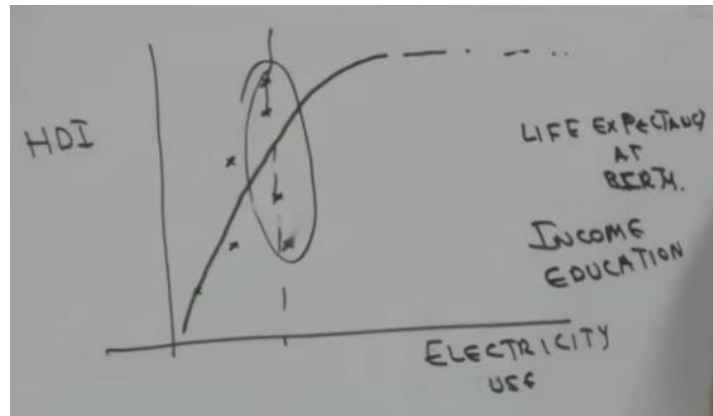 HDI
LIFE EXPECTANCY
AT
BIRTH.
INCOME
EDUCATION
ELECTRICITY
USE